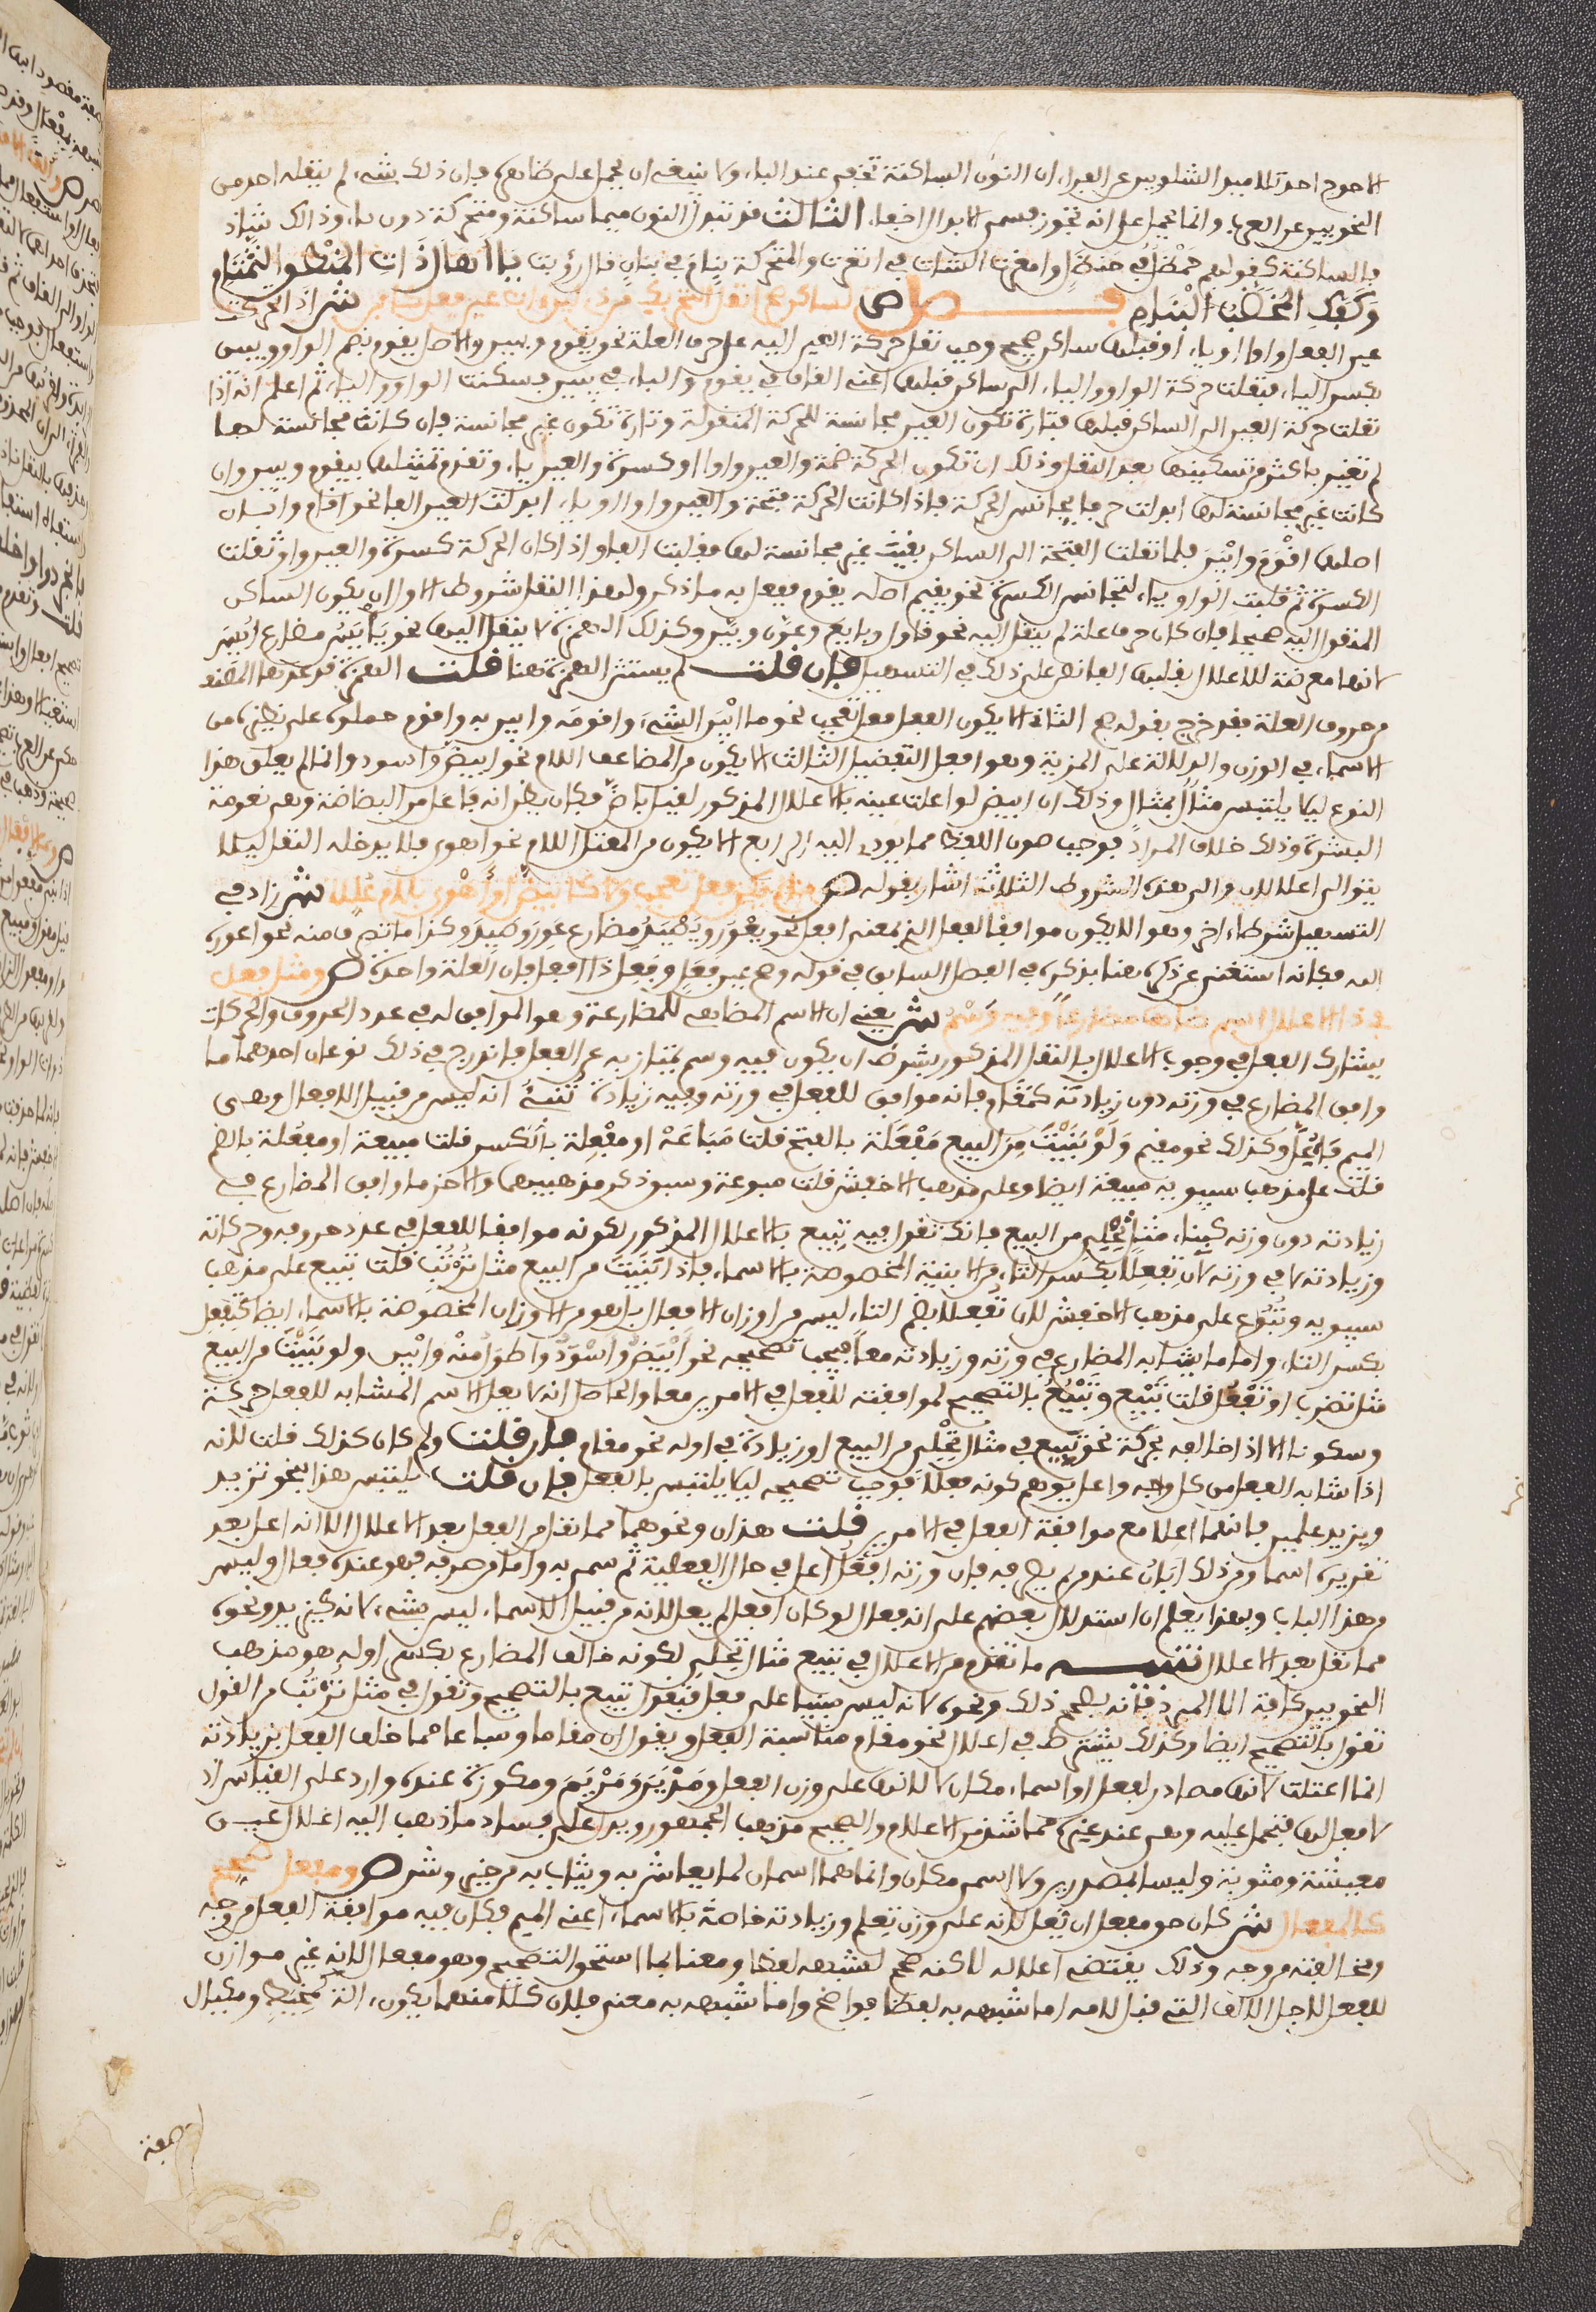 الاحوج احد تلاميذ الشلوبين عن الفراء ان النون الساكنة تخفى عند الباء ولا ينبغي ان يحمل على ظاهره فان ذلك شيء لم ينقله احد من
النحويين عن العرب وانما يحمل على انه تجوز بسمى الابدال اخفاء الثالث قد تبدل النون ميما ساكنة ومتحركة دون باء وذلك شاذ
فالساكنة كقولهم حمظل في حنظل وامغرت الشاة في انغرت والمتحركة بنام في بنان قال رؤبة يا هال ذات المنطق التمتام
وكفك المخضب البنام فصل ص لساكن صح انقل التحريك من ذي لين ات عين فعل كابن ش اذا كانت
عين الفعل واوا او ياء وقبلهما ساكن صحيح وجب نقل حركة العين اليه على حرف العلة نحو يقوم ويبين والاصل يقوم بضم الواو ويبين
بكسر الياء فنقلت حركة الواو والياء الى الساكن قبلهما اعني القاف في يقوم والباء في يبين فسكنت الواو والياء ثم اعلم انه اذا
نقلت حركة العين الى الساكن قبلها فتارة تكون العين مجانسة للحركة المنقولة وتارة تكون غير مجانسة فان كانت مجانسة لها
لم تغير باكثر من تسكينها بعد النقل وذلك ان تكون الحركة ضمة والعين واوا او كسرة والعين ياء وتقدم تمثيلهما بيقوم ويبين وان
كانت غير مجانسة لها ابدلت حرفا يجانس الحركة فاذا كانت الحركة فتحة والعين واوا او ياء ابدلت العين الفا نحو اقام وابان
اصلهما اقوم وابين فلما نقلت الفتحة الى الساكن بقيت غير مجانسة لها فقلبت الفا واذا كان الحركة كسرة والعين واو نقلت
الكسرة ثم قلبت الواو ياء لتجانس الكسرة نحو يقيم اصله يقوم ففعل به ما ذكر ولهذا النقل شروط الاول ان يكون الساكن
المنقول اليه صحيحا فان كان حرف علة لم ينقل اليه نحو قاول وبايع وعوق وبين وكذلك الهمزة لا ينقل اليها نحو يأيس مضارع ايس
لانها معرضة للاعلال بقلبها الفا نص على ذلك في التسهيل فان قلت لم يستثن الهمزة هنا قلت الهمزة قد عدها المصنف
من حروف العلة فقد خرج بقوله صح الثاني الا يكون الفعل فعل تعجب نحو ما ابين الشيء واقومه وابين به واقوم حملوه على نظيره من
الاسماء في الوزن والدلالة على المزية وهو افعل التفضيل الثالث الا يكون من المضاعف اللام نحو ابيض واسود وانما لم يعل هذا
النوع ليلا يلتبس مثال بمثال وذلك ان ابيض لو اعلت عينه بالاعلال المذكور لقيل باض فكان يظن انه فاعل من البضاضة وهي نعومة
البشرة وذلك خلاف المراد فوجب صون اللفظ مما يودي اليه الرابع الا يكون من المعتل اللام نحو اهوى فلا يدخله النقل ليلا
يتوالى اعلالان والى هذه الشروط الثلاثة اشار بقوله ص ما لم يكن فعل تعجب ولا كابيض او اهوى بلام عللا ش زاد في
التسهيل شرطا اخر وهو الا يكون موافقا لفعل الذي بمعنى افعل نحو يعور ويصيد مضارع عور وصيد وكذا ما تصرف منه نحو اعوره
الله فكانه استغنى عن ذكره هنا بذكره في الفصل السابق في قوله وصح عين فعل وفعلا ذا افعل فان العلة واحدة ص ومثل فعل
في ذا الاعلال اسم ضاهى مضارعا وفيه وسم ش يعني ان الاسم المضاهي للمضارعة وهو الموافق له في عدد الحروف والحركات
يشارك الفعل في وجوب الاعلال بالنقل المذكور بشرط ان يكون فيه وسم يمتاز به عن الفعل فاندرج في ذلك نوعان احدهما ما
وافق المضارع في وزنه دون زيادته كمقام فانه موافق للفعل في وزنه وفيه زيادة تنبئ انه ليس من قبيل الافعال وهي
الميم فاعل وكذلك نحو مقيم ولو بنيت من البيع مفعلة بالفتح قلت مباعة او مفعلة بالكسر قلت مبيعة او مفعلة بالضم
قلت على مذهب سيبويه مبيعة ايضا وعلى مذهب الاخفش قلت مبوعة وسبق ذكر مذهبيهما والاخر ما وافق المضارع في
زيادته دون وزنه كبناء مثال تحلئ من البيع فانك تقول فيه تبيع بالاعلال المذكور لكونه موافقا للفعل في عدد حروفه وحركاته
وزيادته لا في وزنه لان تفعلا بكسر التاء من الابنية المخصوصة بالاسماء فاذا بنيت من البيع مثل ترتب قلت تبيع على مذهب
سيبويه وتبوع على مذهب الاخفش لان تفعلا بضم التاء ليس من اوزان الافعال بل هو من الاوزان المخصوصة بالاسماء ايضا كتفعل
بكسر التاء واما ما يشابه المضارع في وزنه وزيادته معا فيجب تصحيحه نحو ابيض واسود واطول منه وابين ولو بنيت من البيع
مثل تضرب او تقعل قلت تبيع وتبيع بالتصحيح لموافقته للفعل في الامرين معا والحاصل انه لا يعل الاسم المشابه للفعل حركة
وسكونا الا اذا خالفه بحركة نحو تبيع في مثال تحلئ من البيع او زيادة في اوله نحو مقام فان قلت ولم كان كذلك قلت لانه
اذا شابه الفعل من كل وجه واعل يوهم كونه فعلا فوجب تصحيحه ليلا يلتبس بالفعل فان قلت يلتبس هذا بنحو تزيد
ويزيد علمين فانهما اعلا مع موافقة الفعل في الامرين قلت هذان ونحوهما مما نقل من الفعل بعد الاعلال لا انه اعل بعد
تقديره اسما ومن ذلك ابان عند من لم يصرفه فان وزنه افعل اعل في حال الفعلية ثم سمي به واما من صرفه فهو عنده فعال وليس
من هذا الباب وبهذا يعلم ان استدلال بعضهم على انه فعال لو كان افعل لم يعل لانه من قبيل الاسماء ليس بشيء لانه كيزيد ونحوه
مما نقل بعد الاعلال تنبيه ما تقدم من الاعلال في تبيع مثال تحلئ لكونه خالف المضارع بكسر اوله هو مذهب
النحويين كافة الا المبرد فانه يصحح ذلك ونحوه لانه ليس مبنيا على فعل فتقول تبيع بالتصحيح وتقول في مثل ترتب من القول
تقول بالتصحيح ايضا وكذلك يشترط في اعلال نحو مقام مناسبة الفعل ويقول ان مقاما ومباعا مما خالف الفعل بزيادته
انما اعتلت لانها مصادر لفعل او اسماء مكان لا لانها على وزن الفعل ومدين ومريم ومكوزة عنده وارد على القياس اذ
لا فعل لها فتحمل عليه وهي عند غيره مما شذ من الاعلام والصحيح مذهب الجمهور ويدل على فساد ما ذهب اليه اعلال عين
معيشة ومثوبة وليسا بمصدرين ولا اسمي مكان وانما هما اسمان لما يعاش به ويثاب به من خير وشر ص ومفعل صحح
كالمفعال ش كان حق مفعل ان يعل لانه على وزن تعلم وزيادته خاصة بالاسماء اعني الميم فكان فيه موافقة الفعل من وجه
ومخالفته من وجه وذلك يقتضي اعلاله لاكنه صحح لشبهه لفظا ومعنى لما استحق التصحيح وهو مفعال لانه غير موازن
للفعل لاجل الالف التي قبل لامه اما شبهه به لفظا فواضح واما شبهه به معنى فلان كلا منهما يكون الة كمخيط ومكيال
صفة